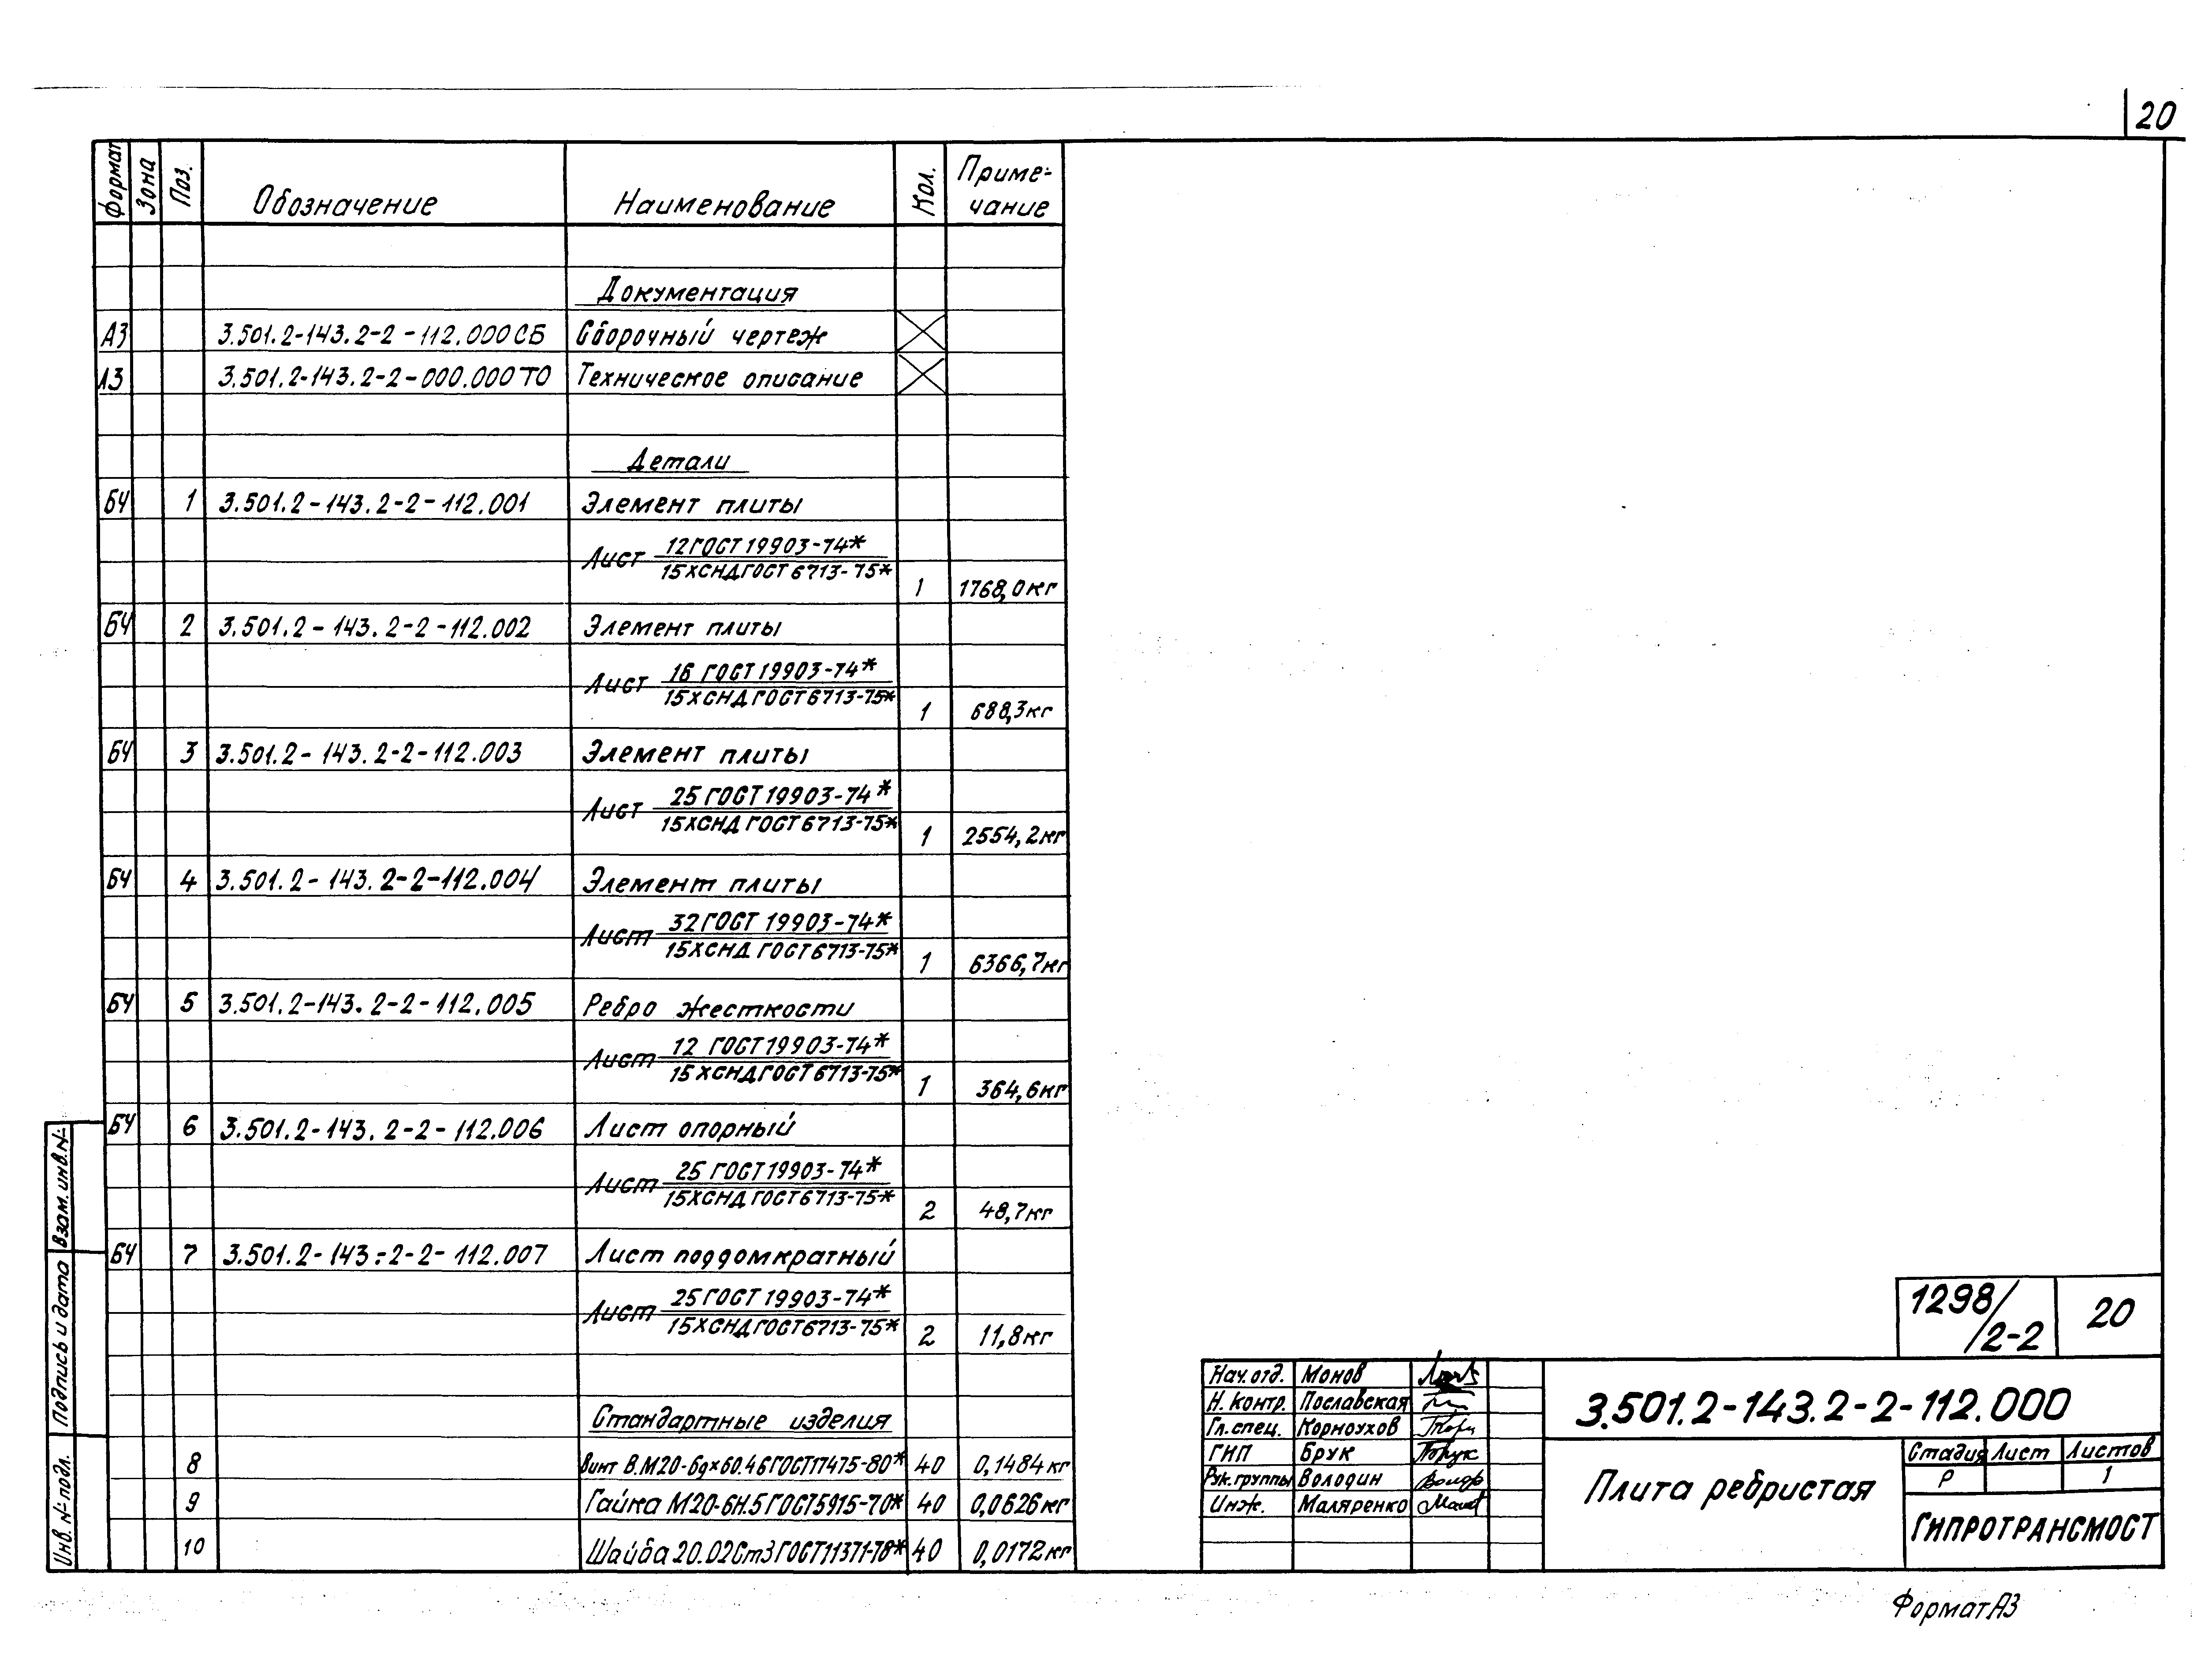 20
Формат Зона Поз. Обозначение Наименование Кол. Приме-
чание
Документация
А3 3.501.2-143.2-2-112.000СБ Сборочный чертеж
А3 3.501.2-143.2-2-000.000ТО Техническое описание
Детали
БЧ 1 3.501.2-143.2-2-112.001 Элемент плиты
Лист 12ГОСТ19903-74*
15ХСНДГОСТ6713-75* 1 1768,0кг
БЧ 2 3.501.2-143.2-2-112.002 Элемент плиты
Лист 16 ГОСТ19903-74*
15ХСНДГОСТ6713-75* 1 688,3кг
БЧ 3 3.501.2-143.2-2-112.003 Элемент плиты
Лист 25 ГОСТ19903-74*
15ХСНД ГОСТ6713-75* 1 2554,2кг
БЧ 4 3.501.2-143.2-2-112.004 Элемент плиты
Лист 32ГОСТ 19903-74*
15ХСНД ГОСТ6713-75* 1 6366,7кг
БЧ 5 3.501.2-143.2-2-112.005 Ребро жесткости
Лист 12 ГОСТ19903-74*
15ХСНДГОСТ6713-75* 1 364,6кг
БЧ 6 3.501.2-143.2-2-112.006 Лист опорный
Лист 25 ГОСТ19903-74*
15ХСНД ГОСТ6713-75* 2 48,7кг
БЧ 7 3.501.2-143.2-2-112.007 Лист поддомкратный
Лист 25ГОСТ 19903-74*
15ХСНДГОСТ6713-75* 2 11,8кг
Стандартные изделия
8 Винт В.М20-6gх60.46ГОСТ17475-80* 40 0,1484кг
9 Гайка М20-6Н.5ГОСТ5915-70* 40 0,0626кг
10 Шайба 20.02Ст3ГОСТ11371-78* 40 0,0172кг
Взам. инв.№
Подпись и дата
Инв. № подл.
1298/2-2 20
Нач.отд. Монов
Н. контр. Пославская
Гл.спец. Корноухов
ГИП Брук
Рук.группы Володин
Инж. Маляренко
3.501.2-143.2-2-112.000
Плита ребристая
Стадия Лист Листов
Р 1
ГИПРОТРАНСМОСТ
Формат А3